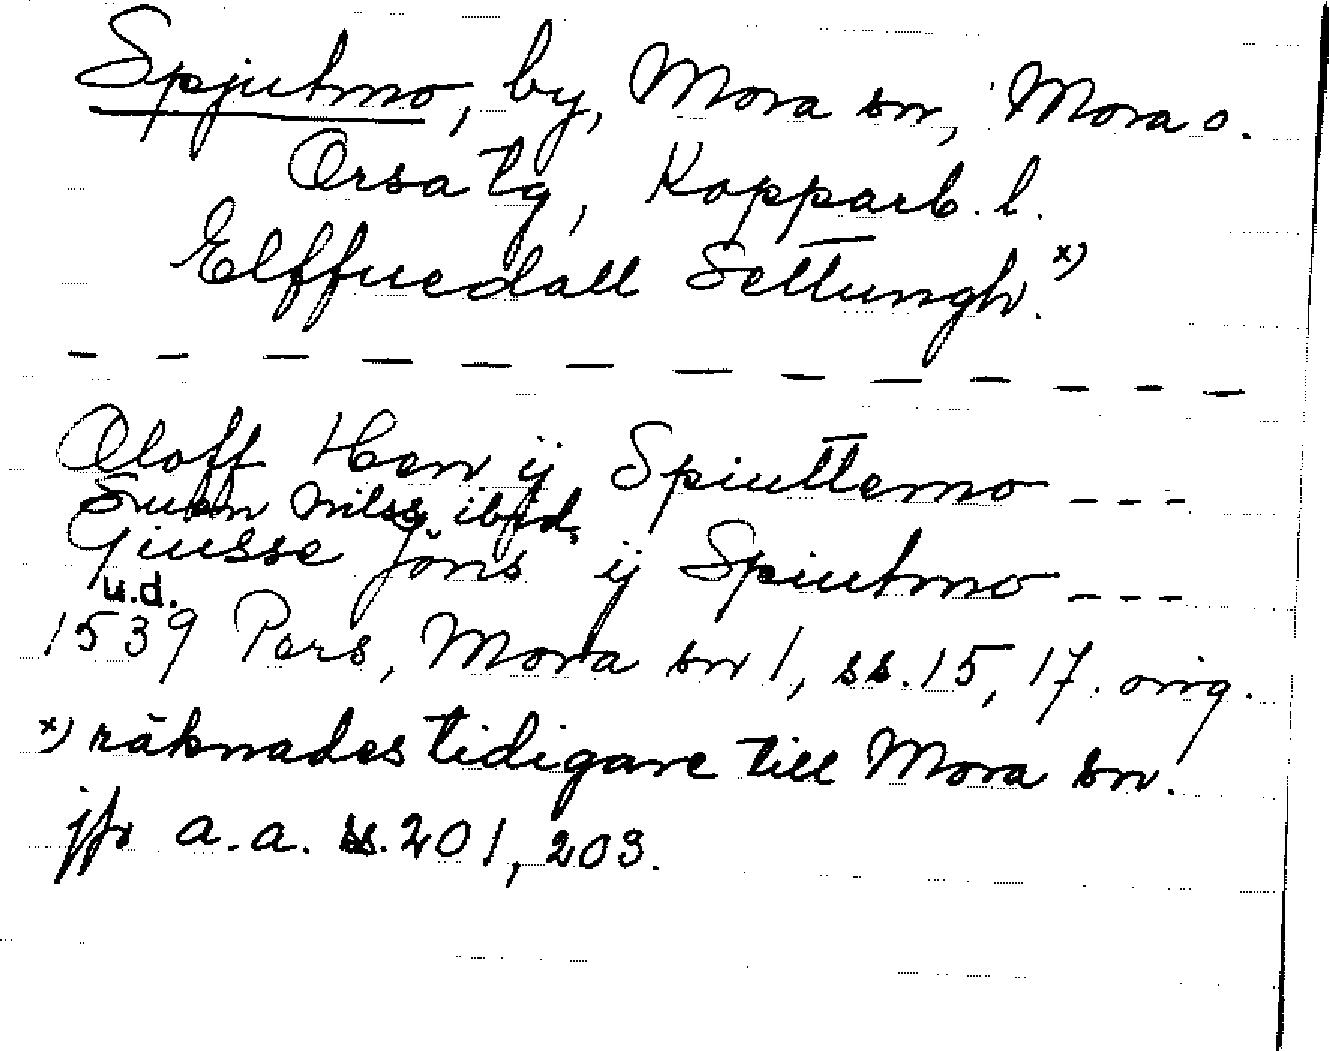 Spjutmo, by, Mora sn, Mora o.
Orsa tg, Kopparb. l.
Elffuedall Settungh. x)
Oloff Hen ij Spiuttemo ---
Suen Nilss ibid.
Giusse Jöns ij Spiutmo ---
u.d.
1539 Pers, Mora sn 1, ss. 15, 17. orig.
x) räknades tidigare till Mora sn.
jfr a.a. ss. 201, 203.